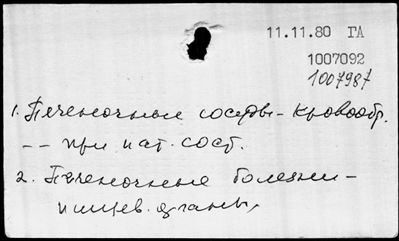 11.11.80 ГА
1007092
1007987
1. Печеночные сосуды - кровообр.
-- при пат. сост.
2. Печеночные болезни -
пищев. органы,